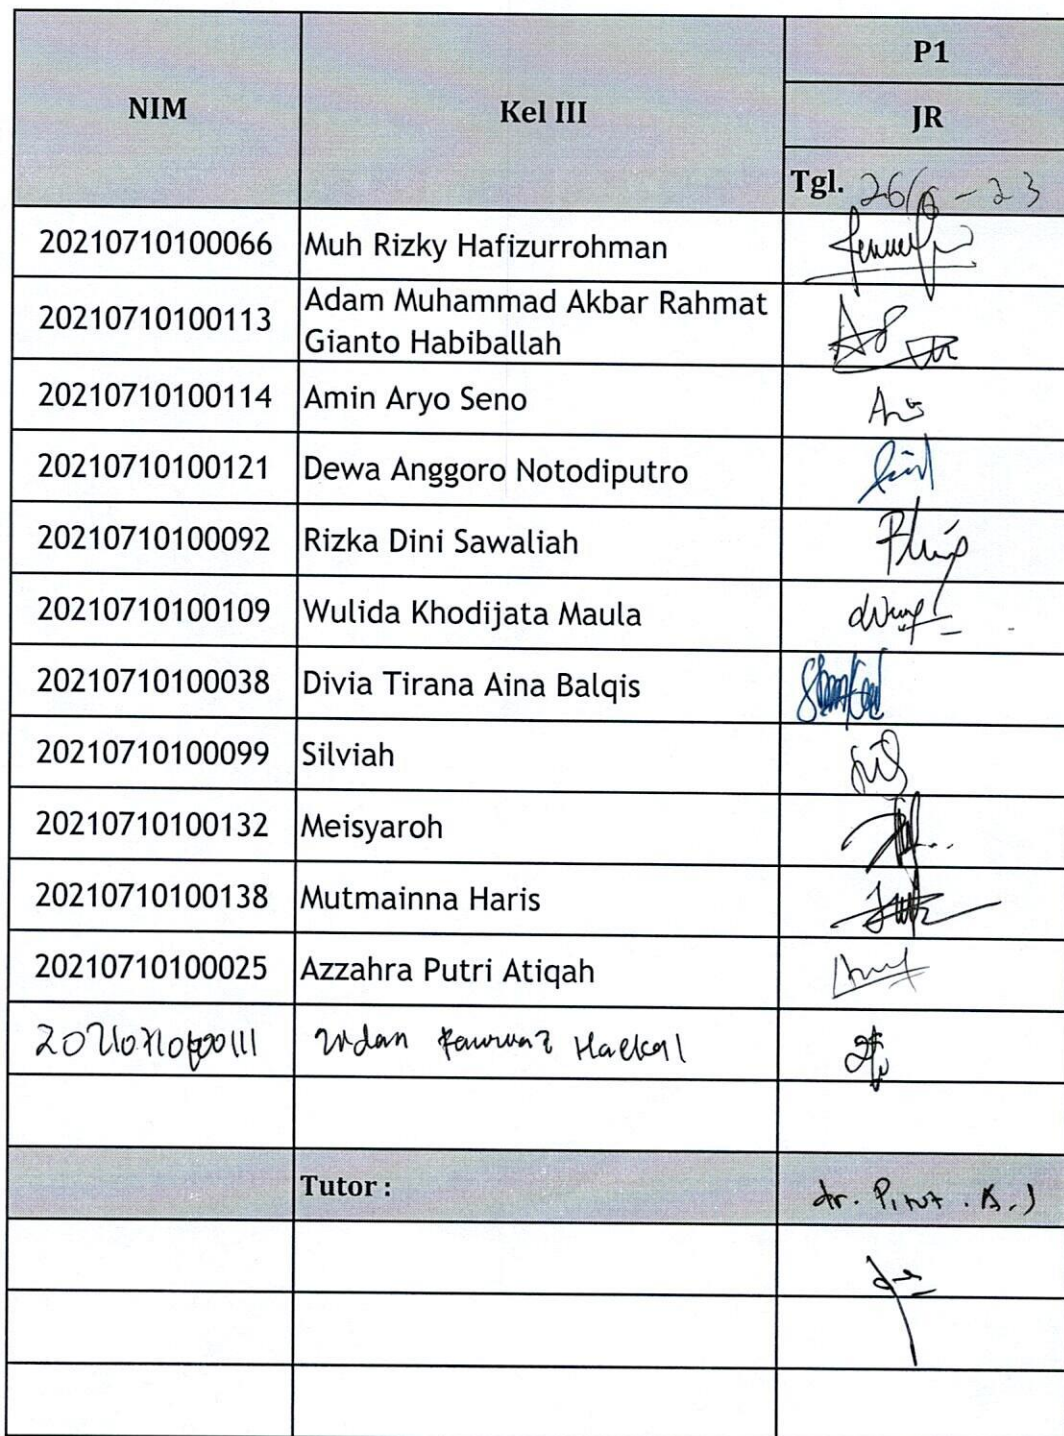 NIM
Kel III
P1
JR
Tgl. 26/6 - 23
20210710100066 Muh Rizky Hafizurrohman
20210710100113 Adam Muhammad Akbar Rahmat
Gianto Habiballah
20210710100114 Amin Aryo Seno
20210710100121 Dewa Anggoro Notodiputro
20210710100092 Rizka Dini Sawaliah
20210710100109 Wulida Khodijata Maula
20210710100038 Divia Tirana Aina Balqis
20210710100099 Silviah
20210710100132 Meisyaroh
20210710100138 Mutmainna Haris
20210710100025 Azzahra Putri Atiqah
Haekal
Tutor :
dr.